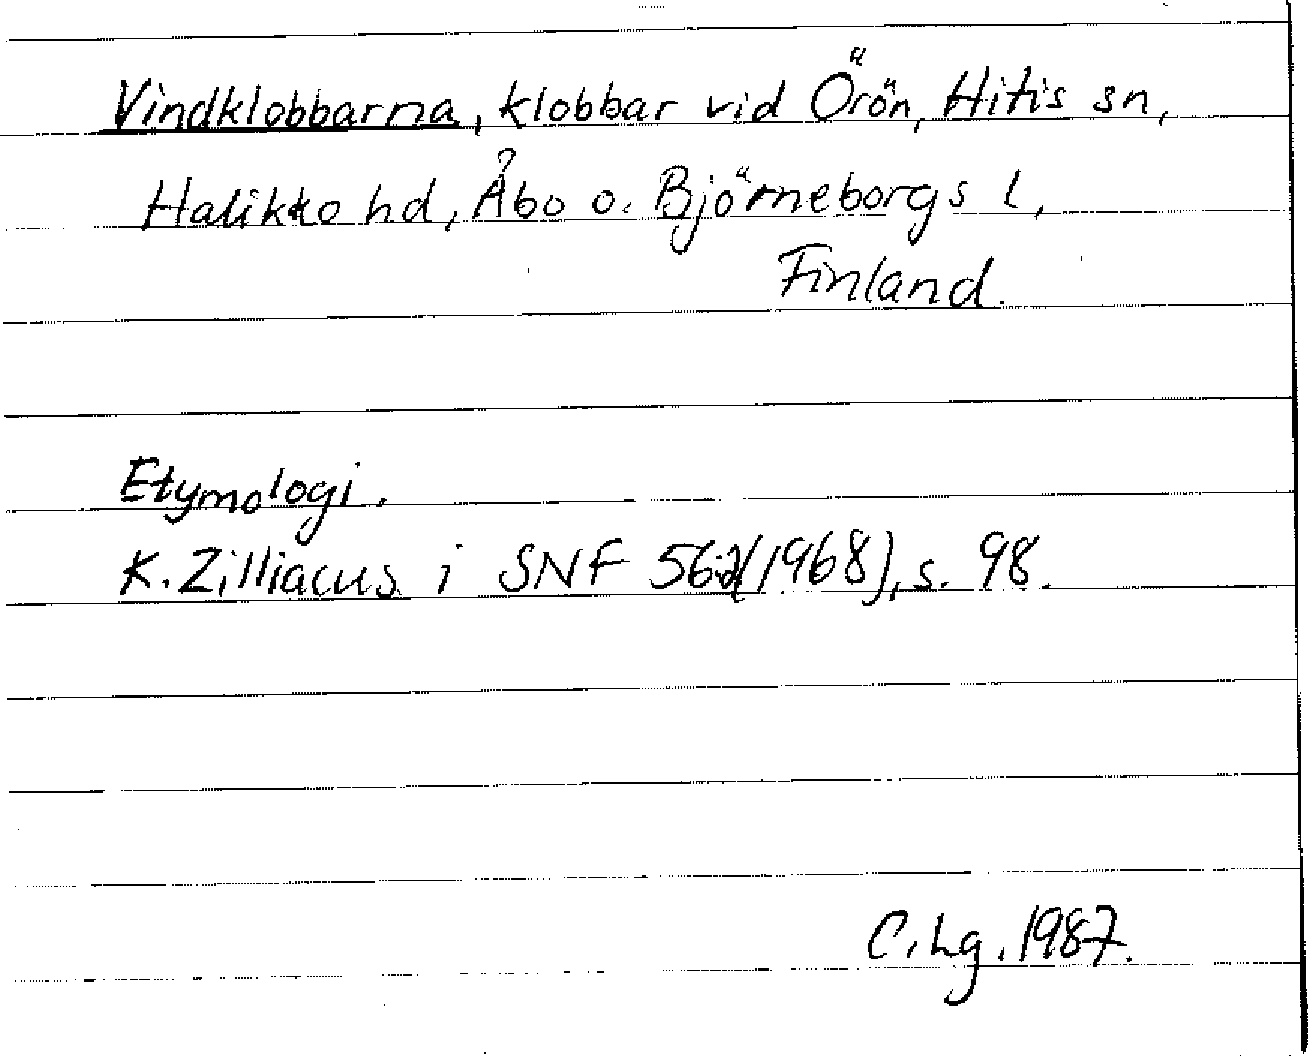 Vindklobbarna, klobbar vid Örön, Hitis sn,
Halikko hd, Åbo o. Björneborgs l,
Finland.
Etymologi.
K. Zilliacus i SNF 56:2(1968), s. 98.
C. Lg. 1987.